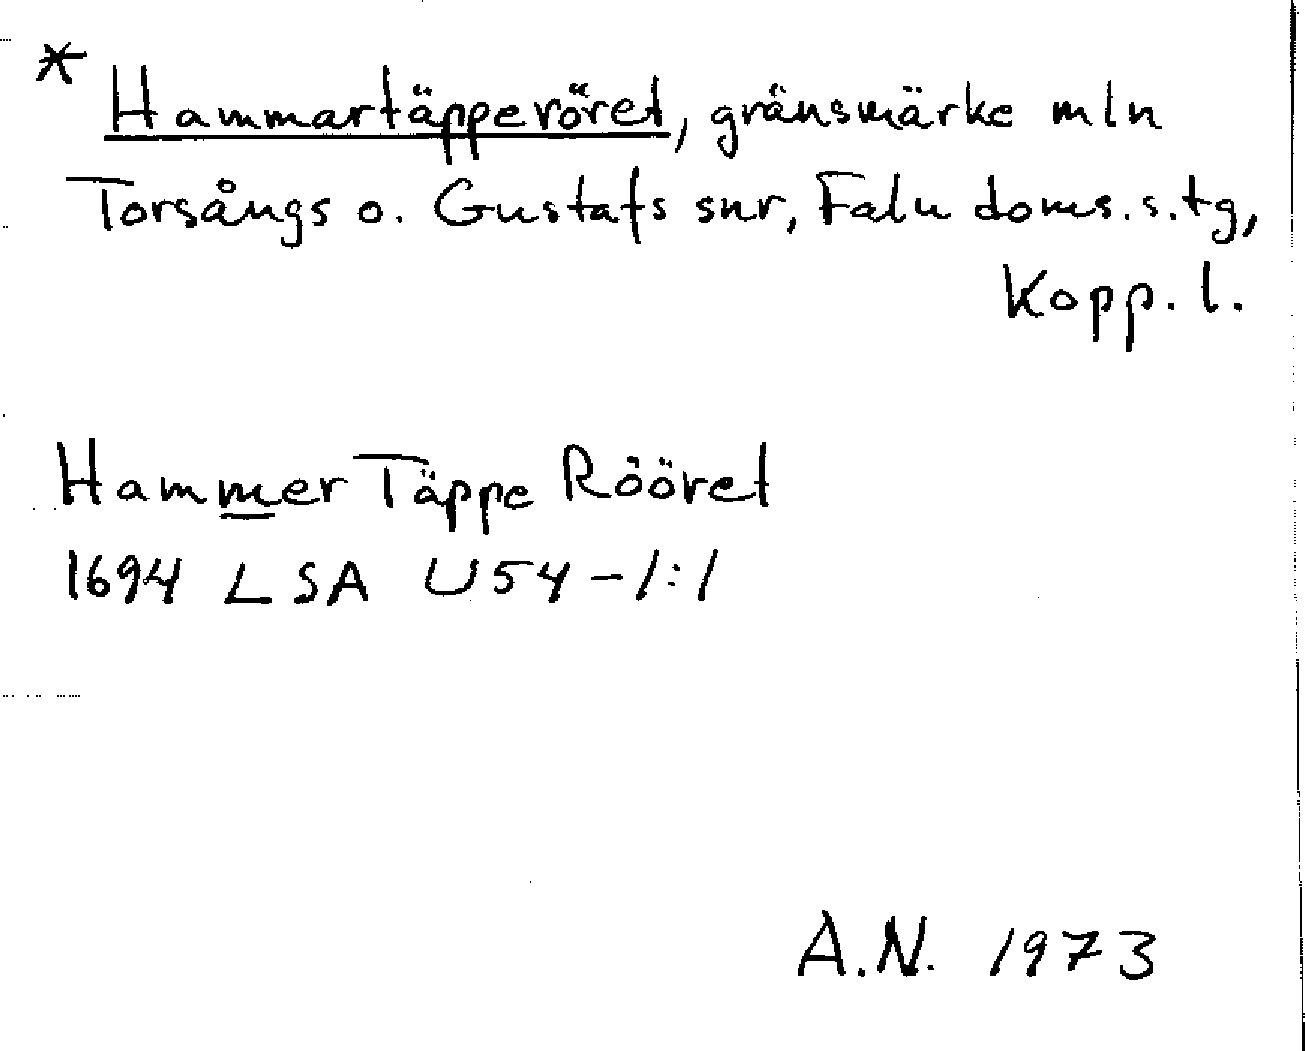 * Hammartäpperöret, gränsmärke mln
Torsångs o. Gustafs snr, Falu doms.s.tg,
Kopp. l.
Hammer Täppe Rööret
1694 LSA U54-1:1
A.N. 1973